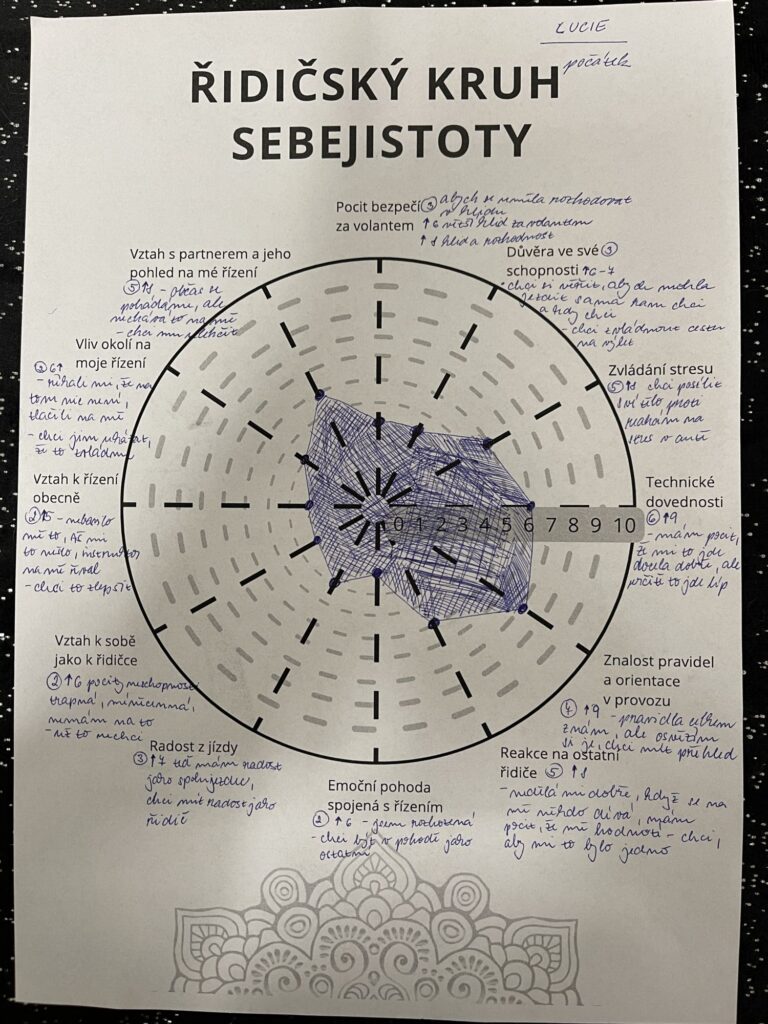 LUCIE
počátek
ŘIDIČSKÝ KRUH
SEBEJISTOTY
Pocit bezpečí ③ abych se uměla rozhodovat
v klidu
za volantem ↑6 větší klid za volantem
↑8 klid a rozhodnost
Důvěra ve své ③
schopnosti ↑6-7
- chci si věřit, abych mohla
jezdit sama kam chci
a kdy chci
- chci zvládnout cestu
na výlet
Zvládání stresu
⑤ ↑8 chci posílit
své tělo proti
reakcím na
stres v autě
Technické
dovednosti
⑥ ↑9
- mám pocit,
že mi to jde
docela dobře, ale
určitě to jde líp
0 1 2 3 4 5 6 7 8 9 10
Znalost pravidel
a orientace
v provozu
↑9 - pravidla celkem
znám, ale osvěžím
si je, chci mít přehled
Reakce na ostatní
řidiče ⑤ ↑8
- nedělá mi dobře, když se na
mě někdo dívá, mám
pocit, že mě hodnotí - chci,
aby mi to bylo jedno
Emoční pohoda
spojená s řízením
② ↑6 - jsem
- chci být v pohodě jako
ostatní
Radost z jízdy
③ ↑7 teď mám radost
jako spolujezdec,
chci mít radost jako
řidič
Vztah k sobě
jako k řidičce
② ↑6 pocity neschopnosti
trapná, méněcenná,
nemám na to
- už to nechci
Vztah k řízení
obecně
② ↑5 - nebavilo
mě to,
to nešlo, instruktor
na mě řval
- chci to zlepšit
Vliv okolí na
moje řízení
③ 6↑
- říkali mi, že na
tom nic není,
tlačili na mě
- chci jim ukázat,
že to zvládnu
Vztah s partnerem a jeho
pohled na mé řízení
⑤ ↑8 - občas se
pohádáme, ale
nechává to na mě
- chci mu ulehčit